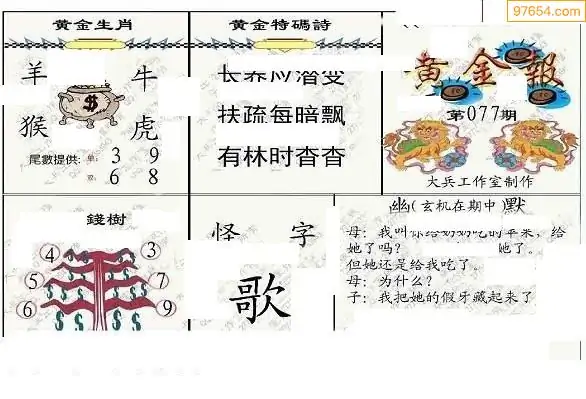 97654.com
黄金生肖
羊 牛
猴 虎
尾數提供: 单: 3 9
双: 6 8
黄金特碼詩
扶疏每暗飘
有林时杳杳
黄金報
第077期
大兵工作室制作
錢樹
4 3
5 7
6 9
怪 字
歌
幽(玄机在期中)默
母：我叫你给奶奶吃的苹来，给
她了吗？ 她了。
但她还是给我吃了。
母：为什么？
子：我把她的假牙藏起来了